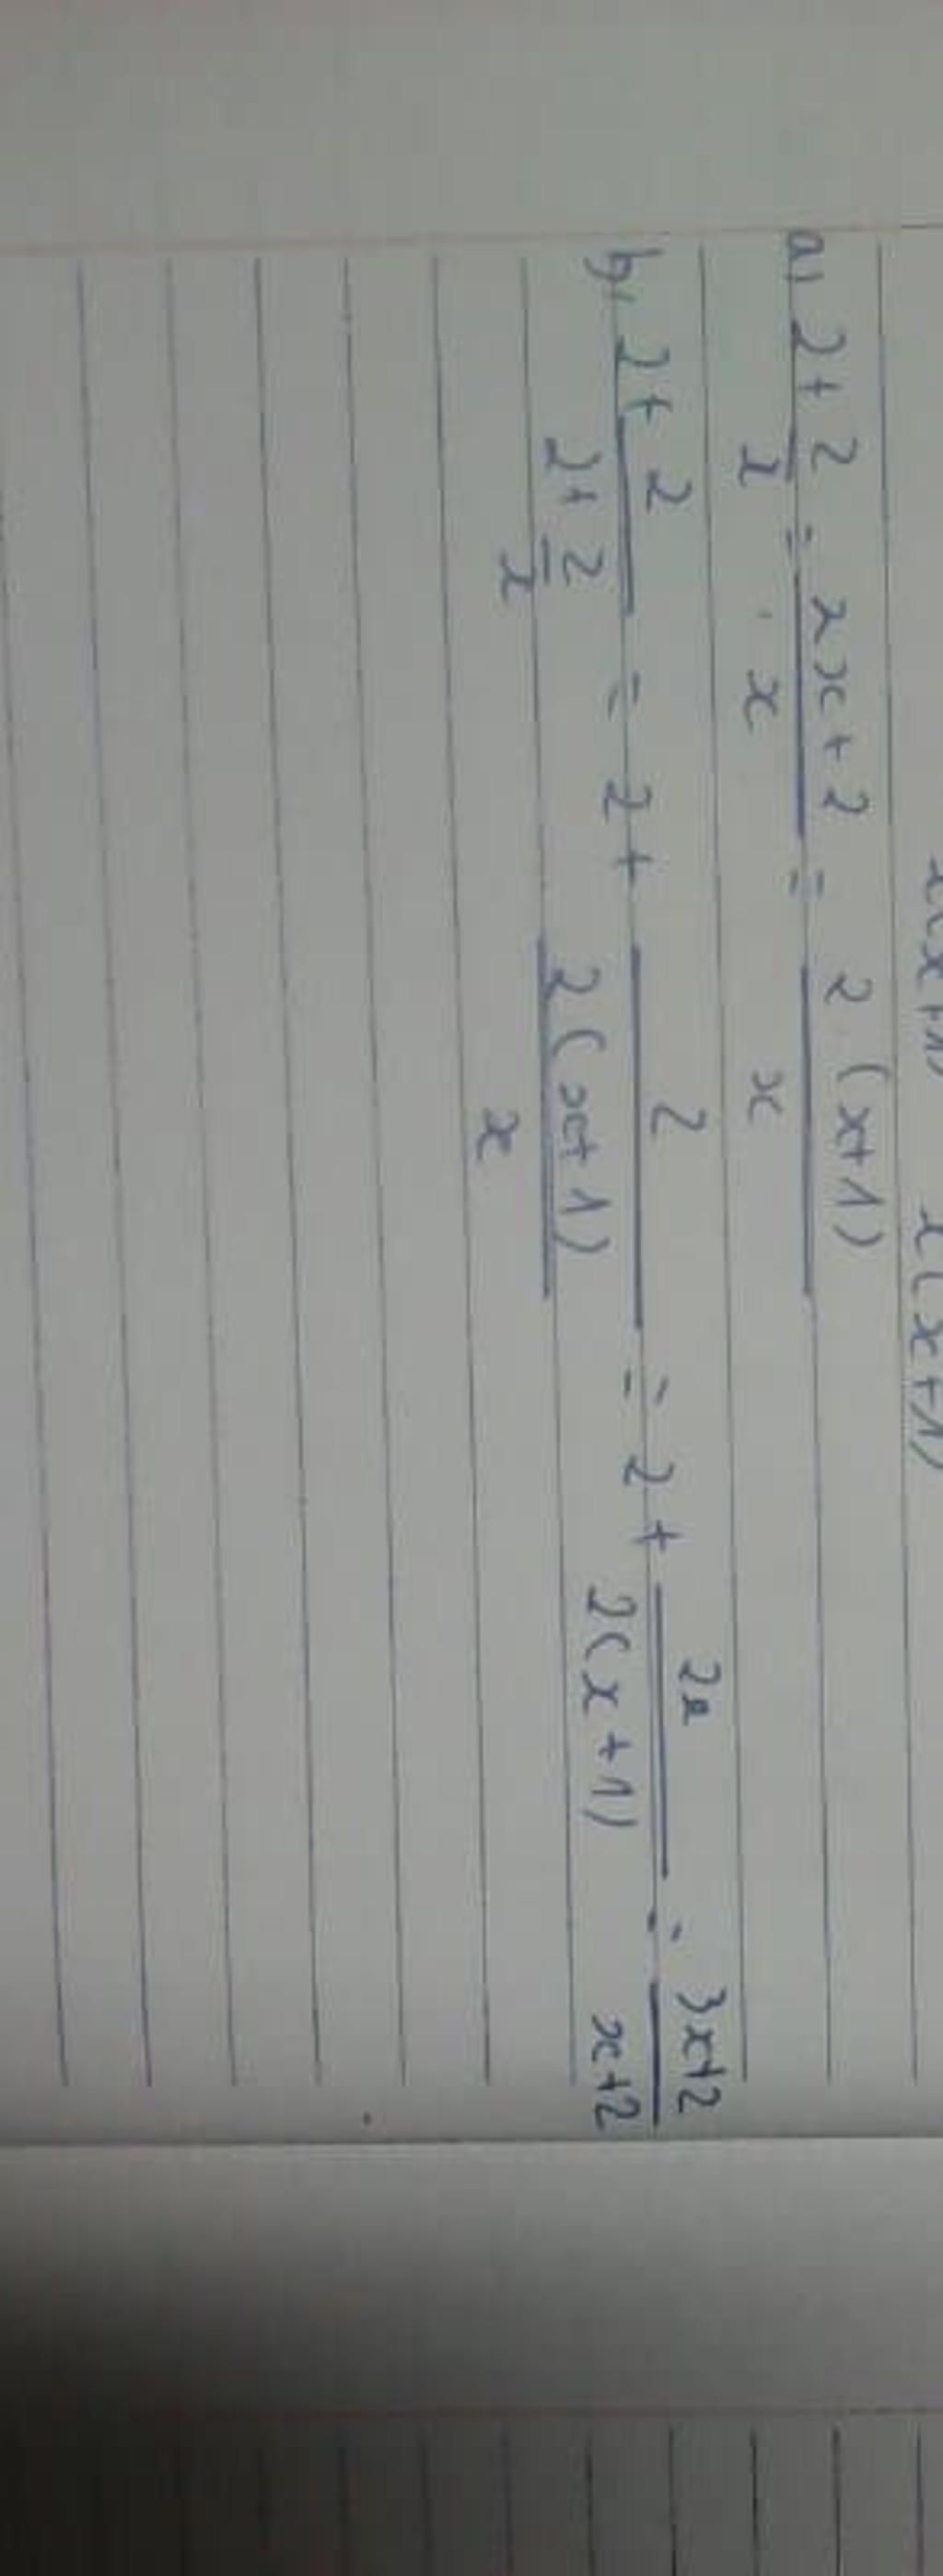 x(x+1) x(x+1)
a, 2 + 2/x = 2x+2/x = 2 (x+1)/x
b, 2 + 2/(2+2/x) = 2 + 2/(2(x+1)/x) = 2 + 2x/2(x+1) = 3x+2/x+2